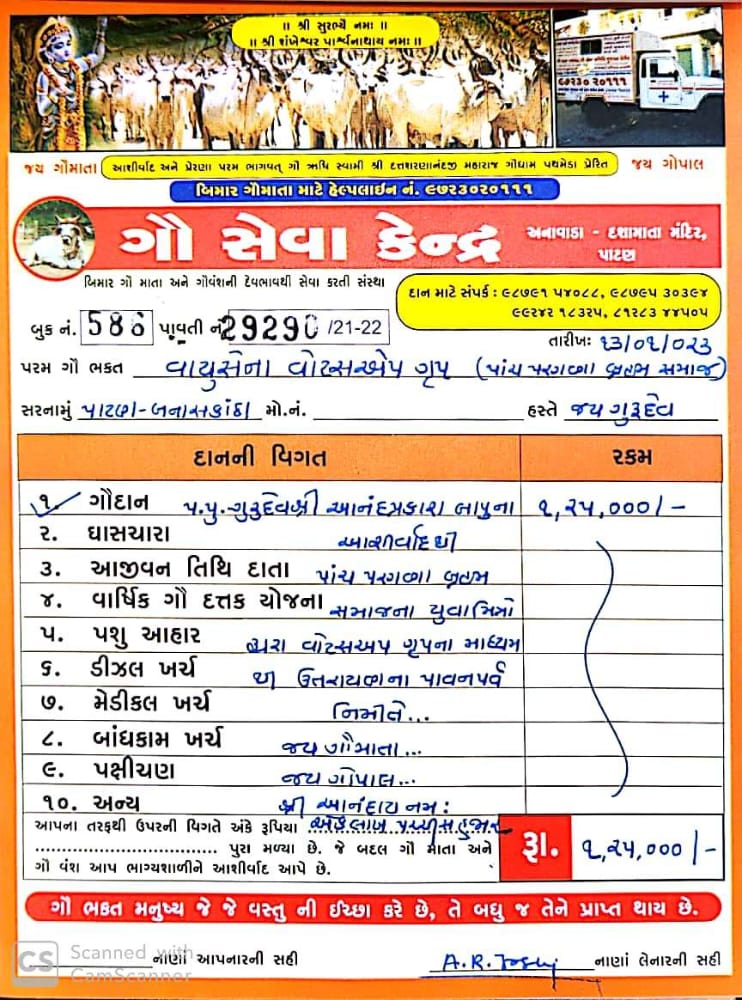 ॥ શ્રી સુરભ્યૈ નમઃ ॥
॥ શ્રી શંખેશ્વર પાર્શ્વનાથાય નમઃ ॥
૯૭૨૩૦ ૨૦૧૧૧
જય ગૌમાતા
આશીર્વાદ અને પ્રેરણા પરમ ભાગવત્ ગૌ ઋષિ સ્વામી શ્રી દત્તશરણાનંદજી મહારાજ ગોધામ પથમેડા પ્રેરિત
જય ગોપાલ
બિમાર ગૌમાતા માટે હેલ્પલાઈન નં. ૯૭૨૩૦૨૦૧૧૧
ગૌ સેવા કેન્દ્ર
અનાવાડા - દશામાતા મંદિર,
પાટણ
બિમાર ગૌ માતા અને ગૌવંશની દેવભાવથી સેવા કરતી સંસ્થા
દાન માટે સંપર્ક : ૯૮૭૯૧ ૫૪૦૮૮, ૯૮૭૯૫ ૩૦૩૯૪
૯૯૨૪૨ ૧૮૩૨૫, ૮૧૨૮૩ ૪૪૫૦૫
બુક નં. 586 પાવતી નં 29290 /21-22
તારીખઃ ૧૩/૦૧/૦૨૩
પરમ ગૌ ભક્ત વાયુસેના વોટ્સએપ ગૃપ (પાંચ પરગણા બ્રહ્મ સમાજ)
સરનામું પાટણ-બનાસકાંઠા મો.નં. હસ્તે જય ગુરૂદેવ
દાનની વિગત રકમ
૧. ગૌદાન પ.પુ.ગુરૂદેવશ્રી આનંદપ્રકાશ બાપુના ૧,૨૫,૦૦૦/-
૨. ઘાસચારા આશીર્વાદ થી
૩. આજીવન તિથિ દાતા પાંચ પરગણા બ્રહ્મ
૪. વાર્ષિક ગૌ દત્તક યોજના સમાજના યુવામિત્રો
૫. પશુ આહાર દ્વારા વોટ્સઅપ ગૃપના માધ્યમ
૬. ડીઝલ ખર્ચ થી ઉત્તરાયણના પાવનપર્વ
૭. મેડીકલ ખર્ચ નિમીતે...
૮. બાંધકામ ખર્ચ જય ગૌમાતા...
૯. પક્ષીચણ જય ગોપાલ...
૧૦. અન્ય શ્રી આનંદાય નમ:
આપના તરફથી ઉપરની વિગતે અંકે રૂપિયા એક લાખ પચ્ચીસ હજાર
પુરા મળ્યા છે. જે બદલ ગૌ માતા અને
ગૌ વંશ આપ ભાગ્યશાળીને આશીર્વાદ આપે છે.
રૂા. ૧,૨૫,૦૦૦/-
ગૌ ભક્ત મનુષ્ય જે જે વસ્તુ ની ઈચ્છા કરે છે, તે બધુ જ તેને પ્રાપ્ત થાય છે.
નાણાં આપનારની સહી A.R.Joshi નાણાં લેનારની સહી
CS Scanned with
CamScanner